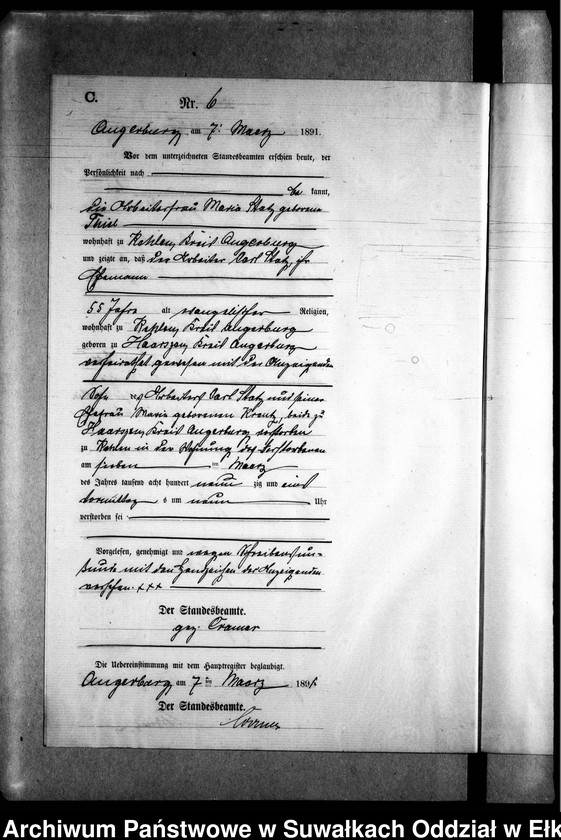 C.
Nr. 6
Angerburg am 7. Maerz 1891.
Vor dem unterzeichneten Standesbeamten erschien heute, der
Persönlichkeit nach
be kannt,
die Arbeiterfrau Maria Statz geborene
Thiel
wohnhaft zu Kehlen, Kreis Angerburg
und zeigte an, daß der Arbeiter Carl Statz, ihr
Ehemann
55 Jahre alt evangelischer Religion,
wohnhaft zu Kehlen, Kreis Angerburg
geboren zu Haarszen, Kreis Angerburg
verheirathet gewesen mit der Anzeigenden
Sohn des Arbeiters Carl Statz und seiner
Ehefrau Maria geborenen Kreutz, beide zu
Haarszen, Kreis Angerburg verstorben
zu Kehlen in der Wohnung des Verstorbenen
am sieben ten Maerz
des Jahres tausend acht hundert neun zig und eins
Vormittags um neun Uhr
verstorben sei
Vorgelesen, genehmigt und wegen Schreibensun-
kunde mit den Handzeichen der Anzeigenden
versehen. +++
Der Standesbeamte.
gez. Cramer
Die Uebereinstimmung mit dem Hauptregister beglaubigt.
Angerburg am 7 ten Maerz 1891.
Der Standesbeamte.
Cramer
Archiwum Państwowe w Suwałkach Oddział w Ełk